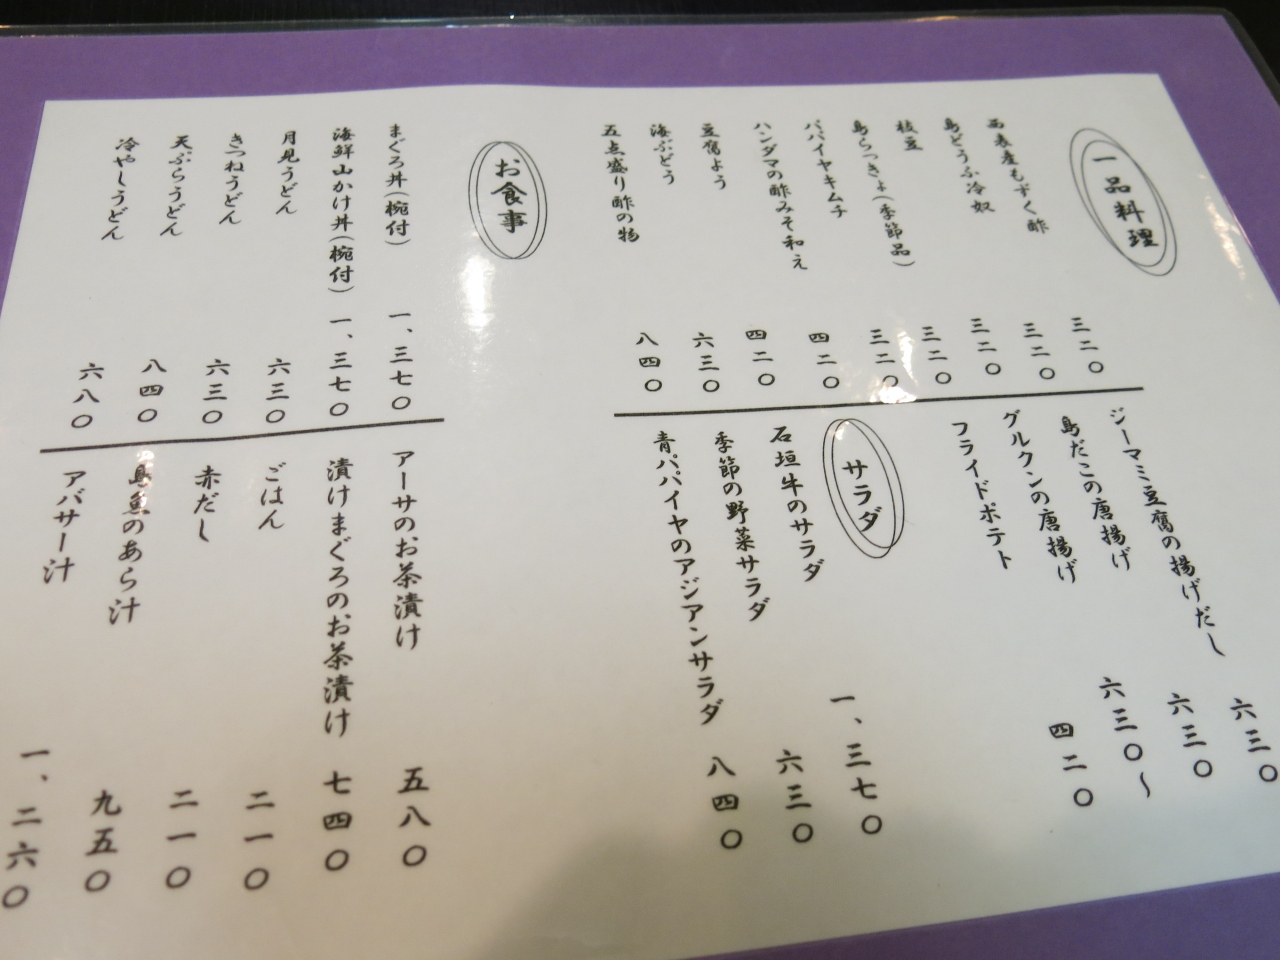 一品料理
西表産もずく酢 三二〇
島どうふ冷奴 三二〇
枝豆 三二〇
島らっきょ(季節品) 三二〇
パパイヤキムチ 三二〇
ハンダマの酢みそ和え 四二〇
豆腐よう 四二〇
海ぶどう 六三〇
五点盛り酢の物 八四〇
ジーマミ豆腐の揚げだし 六三〇
島だこの唐揚げ 六三〇
グルクンの唐揚げ 六三〇〜
フライドポテト 四二〇
サラダ
石垣牛のサラダ 一、三七〇
季節の野菜サラダ 六三〇
青パパイヤのアジアンサラダ 八四〇
お食事
まぐろ丼(椀付) 一、三七〇
海鮮山かけ丼(椀付) 一、三七〇
月見うどん 六三〇
きつねうどん 六三〇
天ぷらうどん 八四〇
冷やしうどん 六八〇
アーサのお茶漬け 五八〇
漬けまぐろのお茶漬け 七四〇
ごはん 二一〇
赤だし 二一〇
島魚のあら汁 九五〇
アバサー汁 一、二六〇